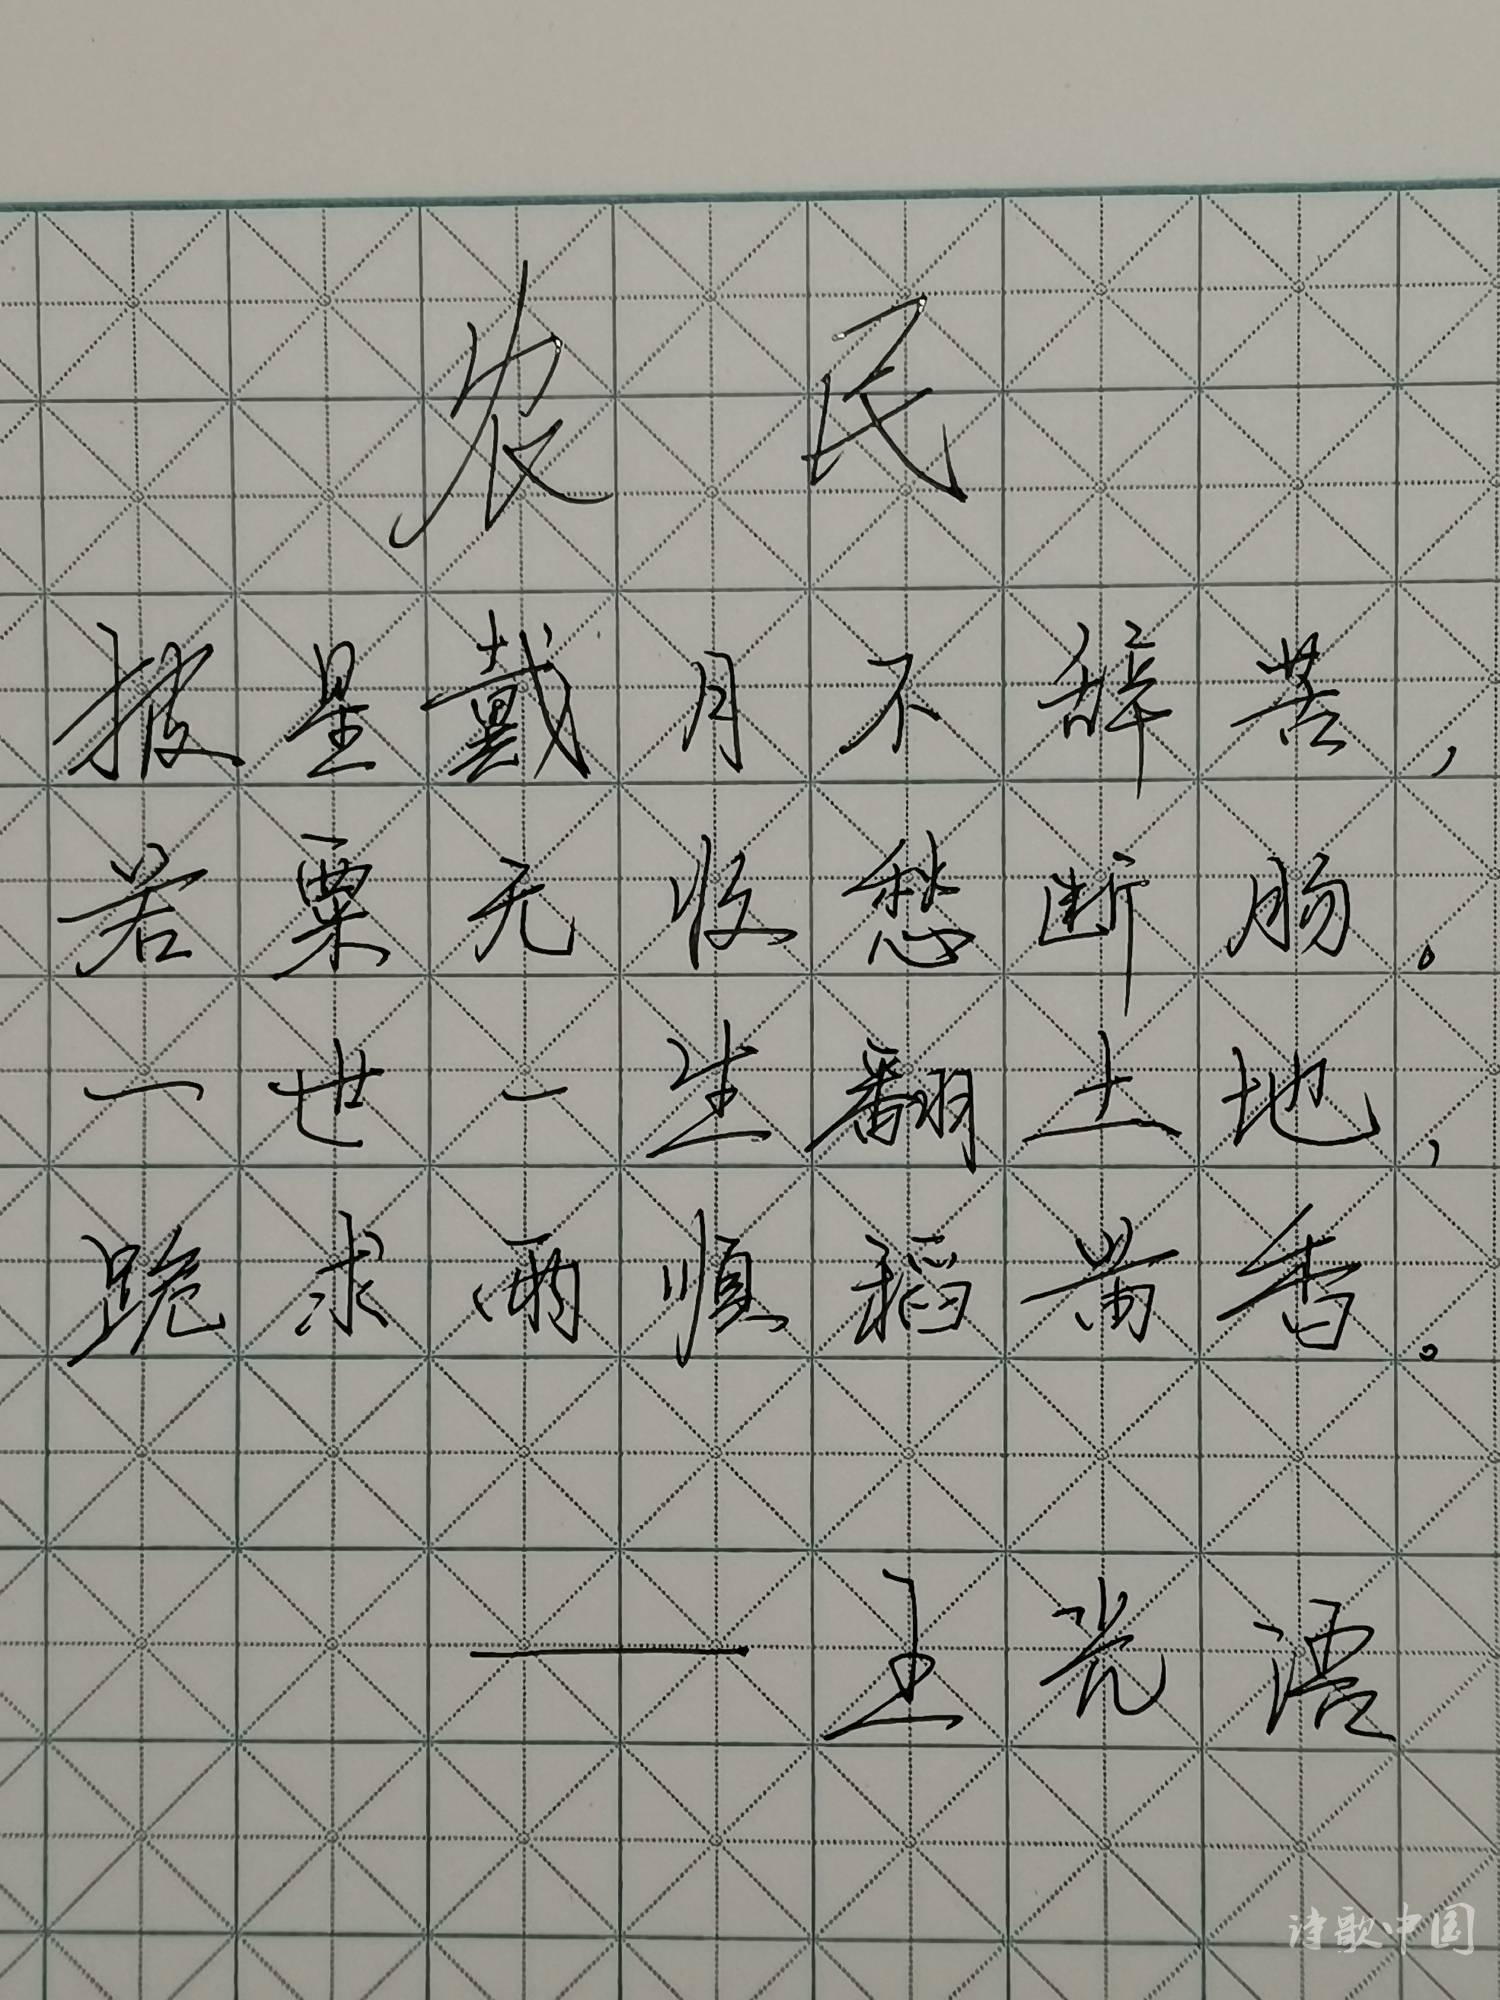 农民
披星戴月不辞苦，
若粟无收愁断肠。
一世一生翻土地，
跪求雨顺稻黄香。
——王光语
诗歌中国